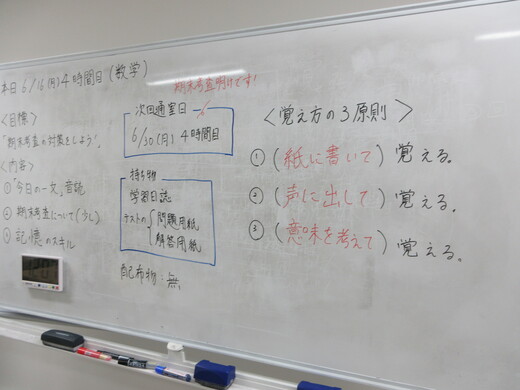 本日 6/16(月) 4時間目(数学)
<目標>
"期末考査の対策をしよう".
<内容>
①「今日の一文」音読
②期末考査について(少し)
③記憶のスキル
期末考査明けです!
次回通室日
6/30(月) 4時間目
持ち物
学習日誌
テストの{問題用紙
解答用紙
配布物:無
<覚え方の3原則>
①(紙に書いて)覚える。
②(声に出して)覚える。
③(意味を考えて)覚える。